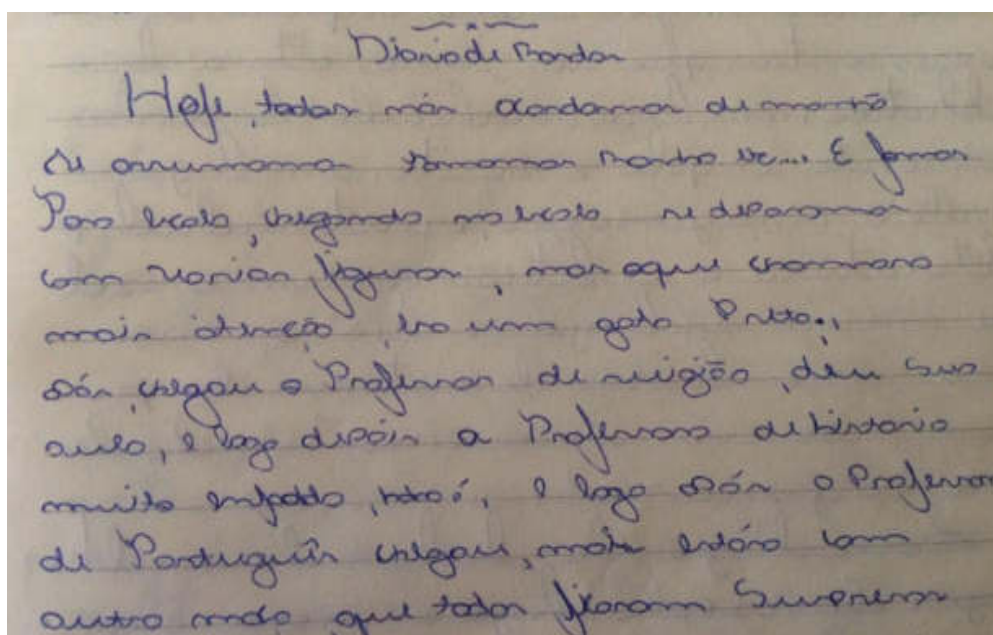 Diario de Bordo
Hoje, todos nós acordamos de manhã
se arrumamos tomamos banho etc... E fomos
Para escola, chegando na escola se deparamos
com varias figuras, mas a que chamava
mais atenção, era um gato Preto.,
após chegou o Professor de religião, deu sua
aula, e logo depois a Professora de historia
muito, e logo após o Professor
de Português chegou, mais estava com
outro modo que todos ficaram Surpresos